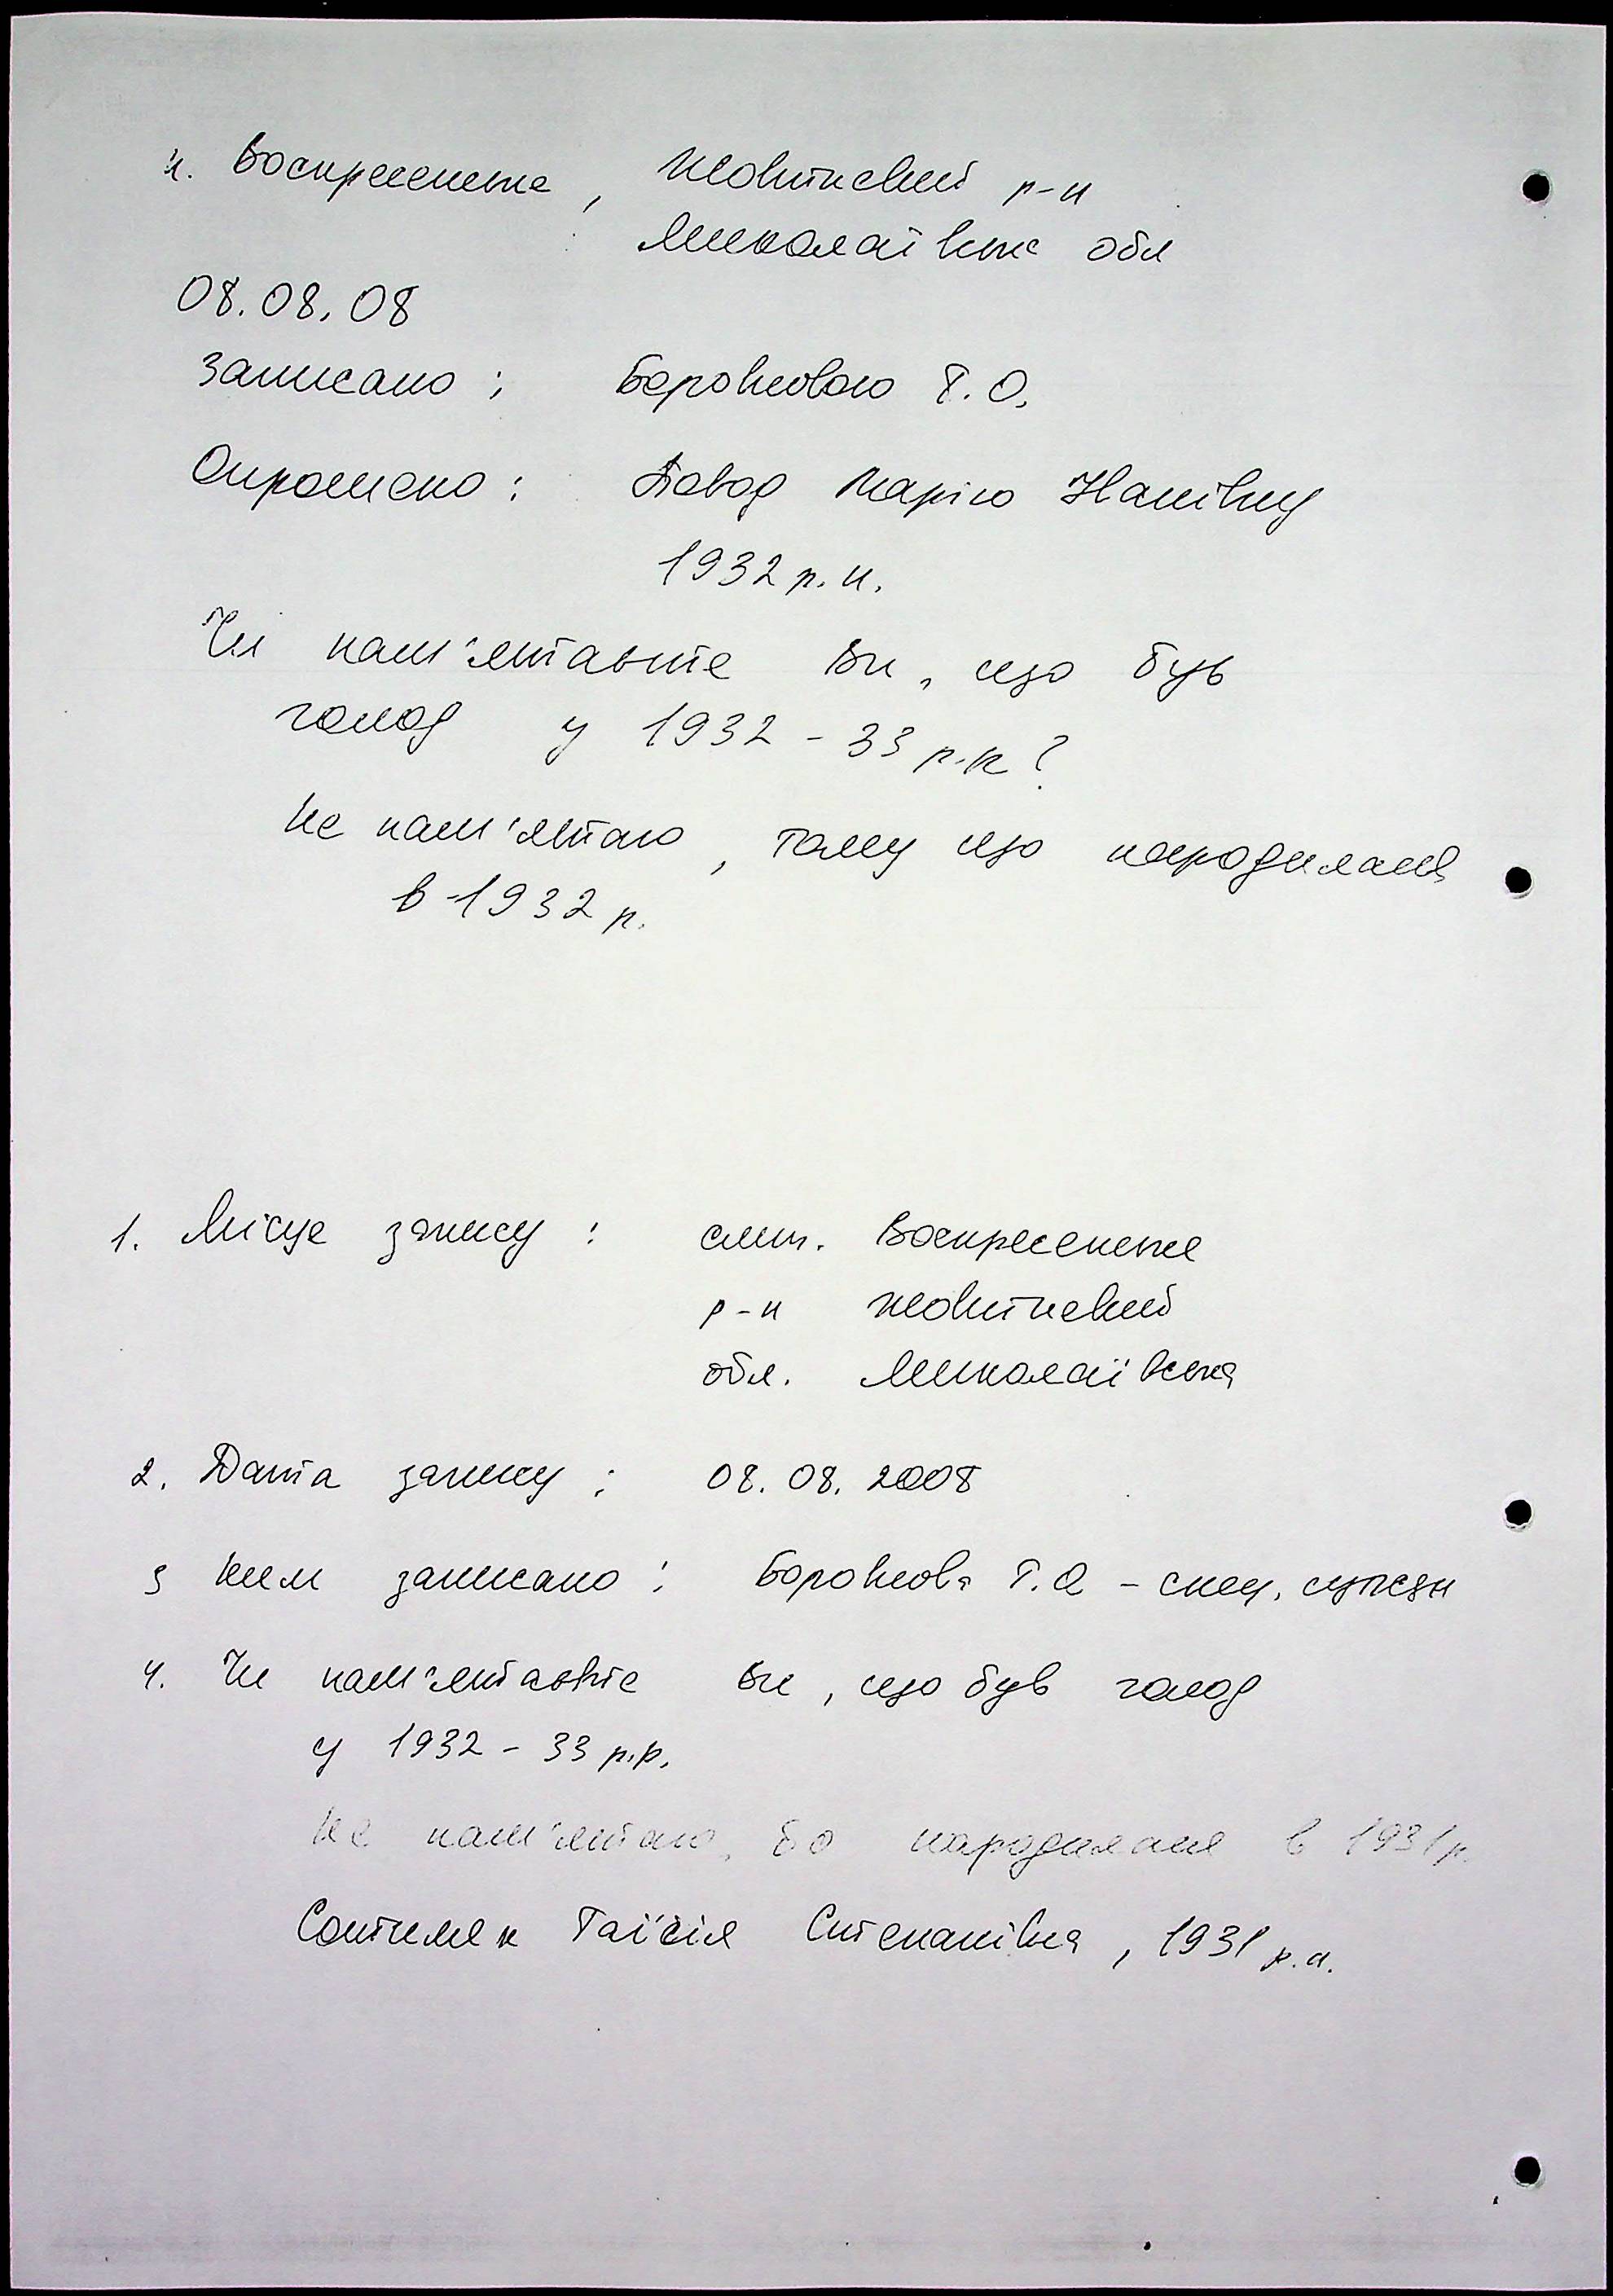 с. Воскресенське, Жовтневий р-н
Миколаївська обл
08.08.08
Записано: Боровковою Т.О.
Опрошено: Повод Марію
1932 р.н.
Чи пам'ятаєте Ви, що був
голод у 1932-33 р.р?
Не пам'ятаю, тому що народилася
в 1932 р.
1. Місце запису: смт. Воскресенське
р-н Жовтневий
обл. Миколаївська
2. Дата запису: 08.08.2008
3 Ким записано: Боровкова Т.О -
4. Чи пам'ятаєте Ви, що був голод
у 1932-33 р.р.
Не пам'ятаю, бо народилася в 1931 р.
Таїсія Степанівна, 1931 р.н.